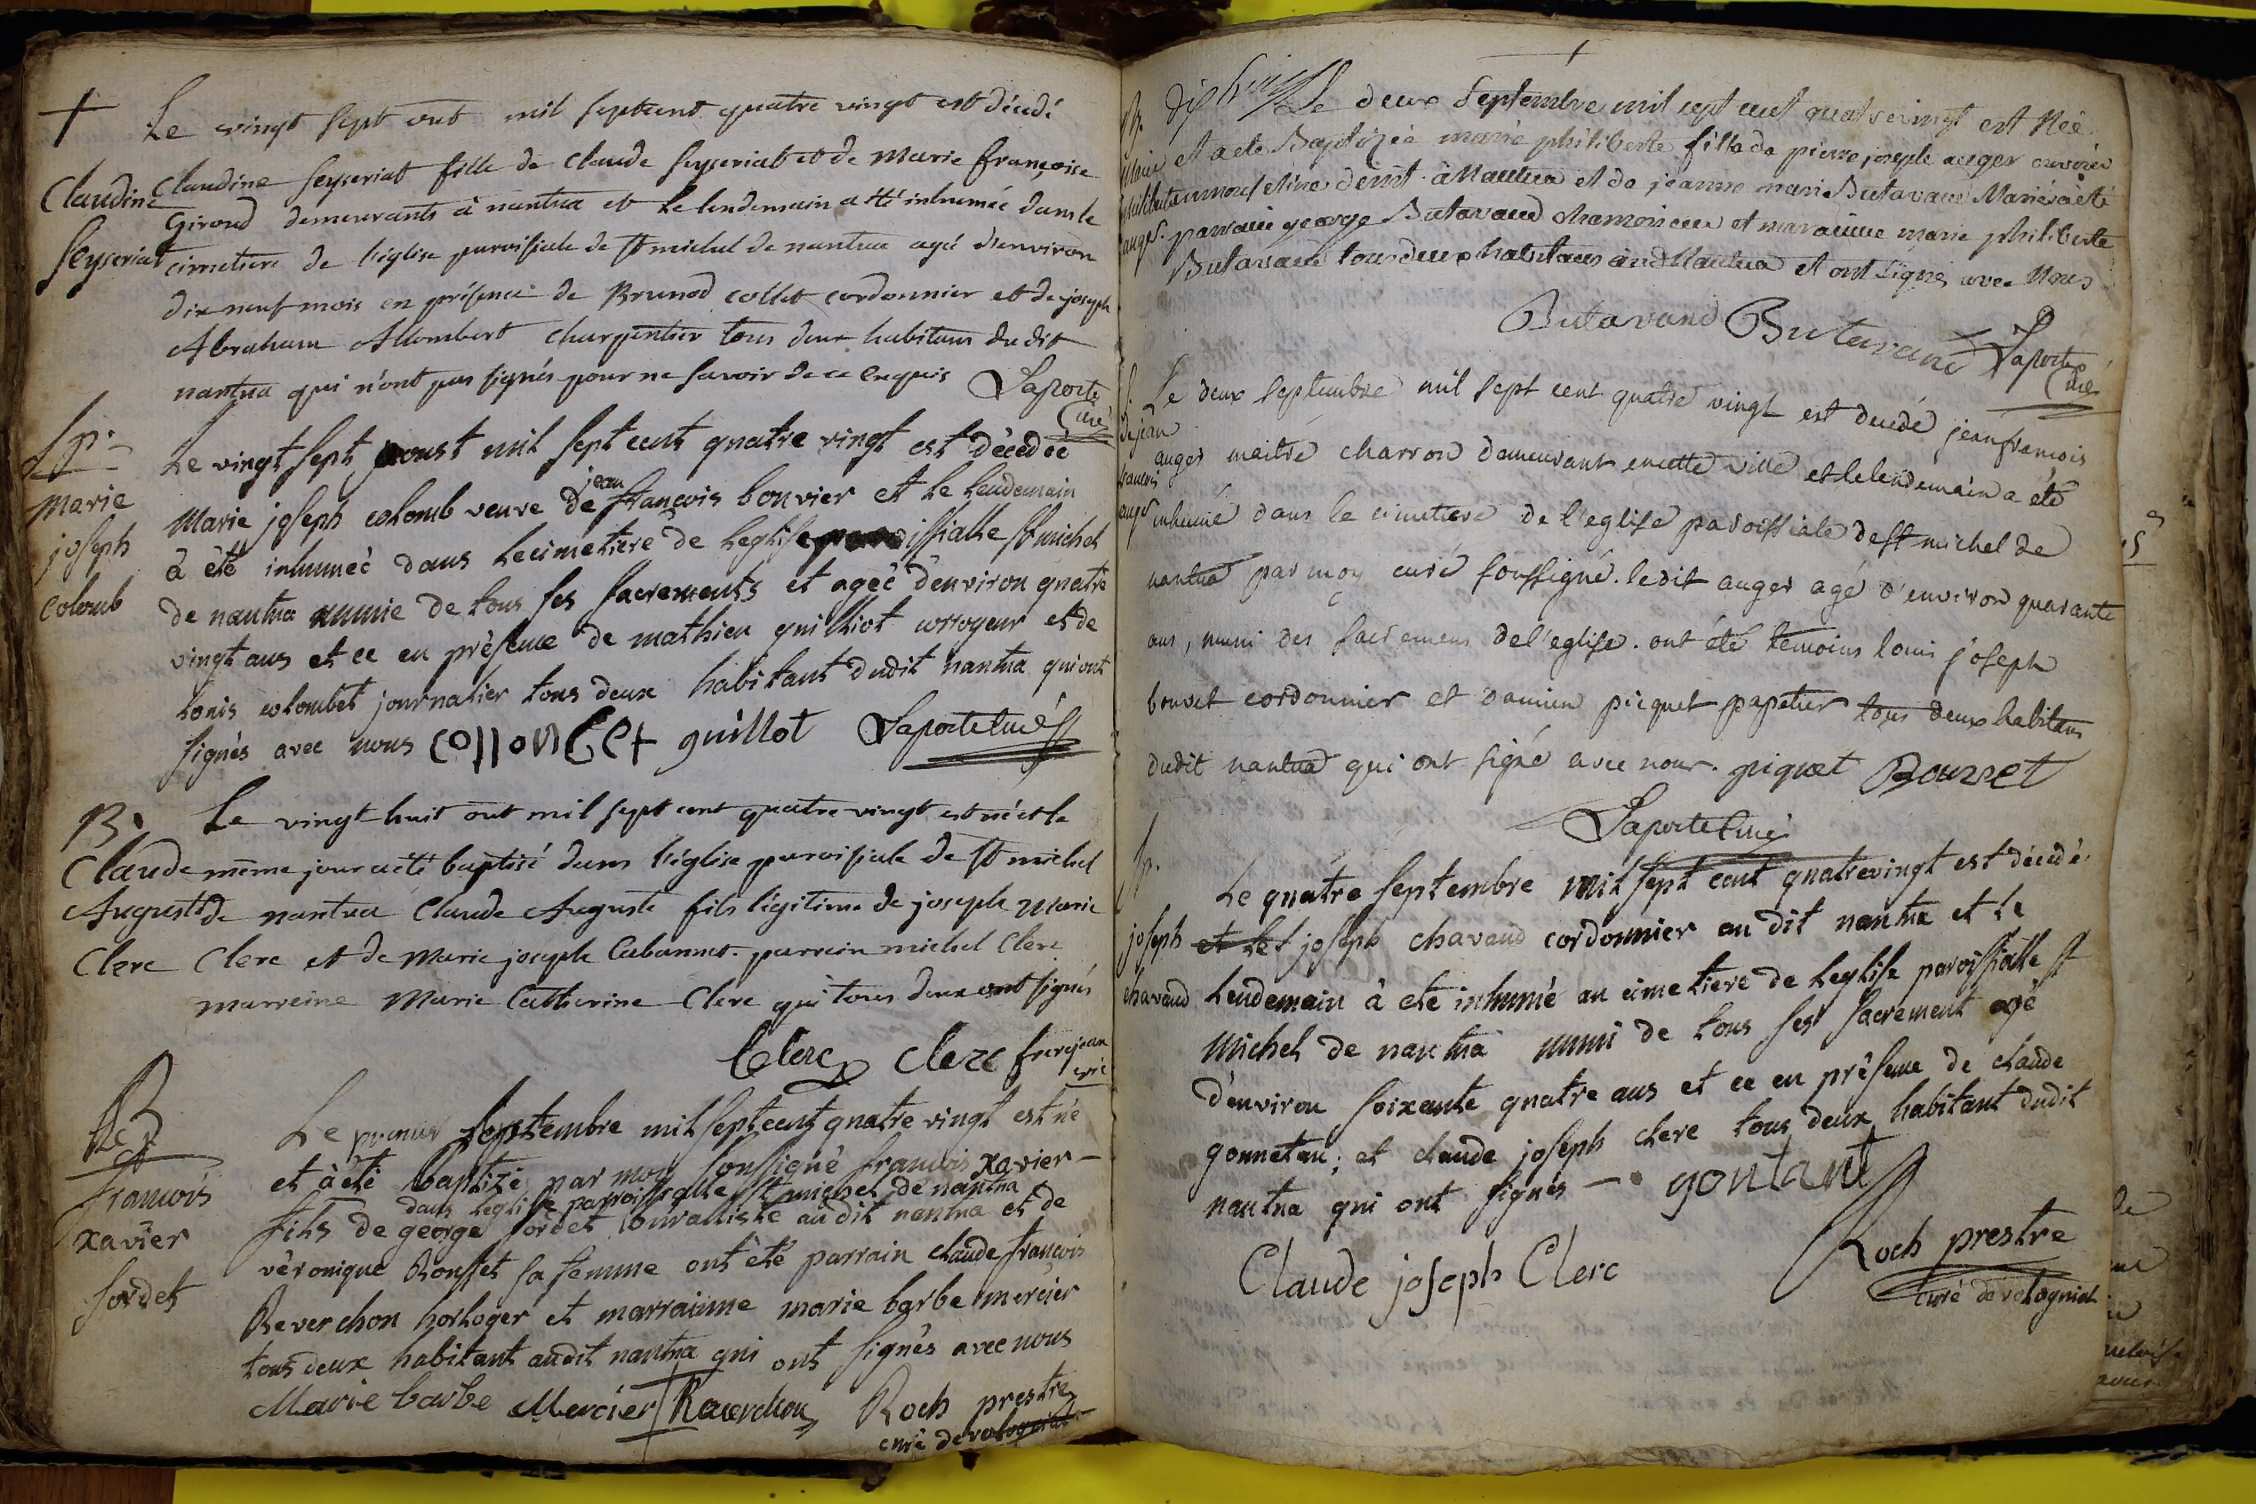 +
Le vingt sept out mil sept cent quatre vingt est décédé
Claudine Seyseriat
Claudine Seyseriat fille de Claude Seyseriat et de Marie françoise
Giroud demeurants à nantua et le lendemain a été inhumée dans le
cimetiere de l'église paroissiale de st michel de nantua agé d'environ
dix neuf mois en présence de Brunod collet cordonnier et de joseph
Abraham Allombert charpentier tous deux habitans dudit
nantua qui n'ont pas signés pour ne savoir de ce enquis Laporte
Curé
Sp.
marie
joseph
colomb
Le vingt sept aoust mil sept cent quatre vingt est décédée
marie joseph colomb veuve de jean françois bonvier et le lendemain
à été inhumeé dans le cimetiere de leglise parroissialle st michel
de nantua munie de tous ses sacrements et ageé d'environ quatre
vingt ans et ce en présence de mathieu guilliot corroyeur et de
louis colombet journalier tous deux habitant dudit nantua qui ont
signés avec nous collonbet guillot Laporte curé
B.
Claude
Auguste
Clerc
Le vingt huit out mil sept cent quatre vingt est né et le
même jour a été baptisé dans l'église paroissiale de st michel
de nantua Claude Auguste fils légitime de joseph Marie
Clerc et de Marie joseph Cabannet. parrain michel Clerc
marreine Marie Catherine Clerc qui tous deux ont signés
Clerc Clerc frerejean
vic
B
françois
xavier
sordet
Le premier septembre mil sept cent quatre vingt est né
et à été baptizé par moy soussigné françois xavier
dans leglise parroissialle st michel de nantua
fils de george sordet audit nantua et de
véronique Rousset sa femme ont été parrain claude françois
Reverchon horloger et marrainne marie barbe mercier
tous deux habitant audit nantua qui ont signés avec nous
Marie barbe Mercier Reverchon Roch prestre
curé de volognat
dix huit
+
B.
Marie
philiberte
auger
Le deux Septembre mil sept cent quatrevingt est Née
et a eté Baptizée marie philiberte fille de pierre joseph auger ouvrier
en mousseline demt. à Nantua et de jeanne marie Butavand Mariés à été
parrain george Butavand chamoiseur et maraiine marie philiberte
Butavand tous deux habitans aud Nantua et ont signé avec Nous
Butavand Butavand Laporte
Curé
S.
de jean
francois
auger
Le deux septembre mil sept cent quatre vingt est decédé jean francois
auger maitre charron demeurant en cette ville et le lendemain a été
inhumé dans le cimetiere de l'eglise paroissiale de st michel de
nantua par moy curé soussigné. ledit auger agé d'environ quarante
ans, muni des sacremens de l'eglise. ont été temoins louis joseph
bouvet cordonnier et damien picquet papetier tous deux habitans
dudit nantua qui ont signé avec nous. piquet Bouvet
Laporte Curé
Sp.
joseph
chavand
Le quatre septembre mil sept cent quatrevingt est décédé
et le joseph chavand cordonnier au dit nantua et le
lendemain à eté inhumé au cimetiere de leglise paroissialle st
michel de nantua muni de tous ses sacrement agé
d'environ soixante quatre ans et ce en présence de claude
gonnetan; et claude joseph clerc tous deux habitant dudit
nantua qui ont signés gontant
Claude joseph Clerc Roch prestre
curé de volognat